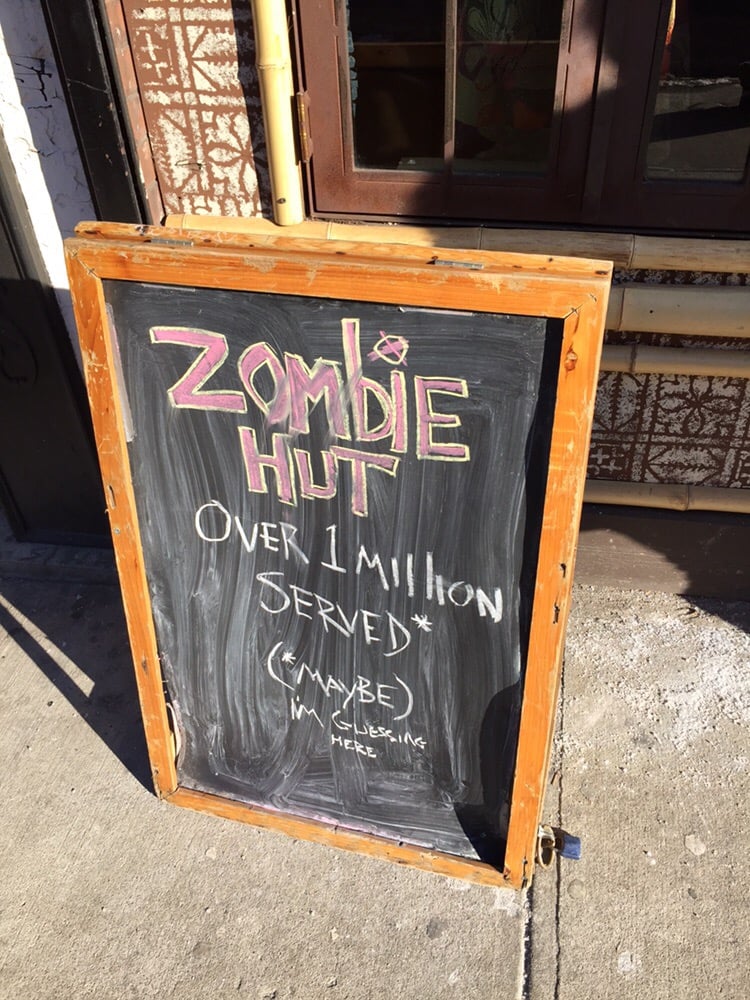 ZOMBIE
HUT
OVER 1 MILLION
SERVED*
(*MAYBE)
I'M GUESSING
HERE